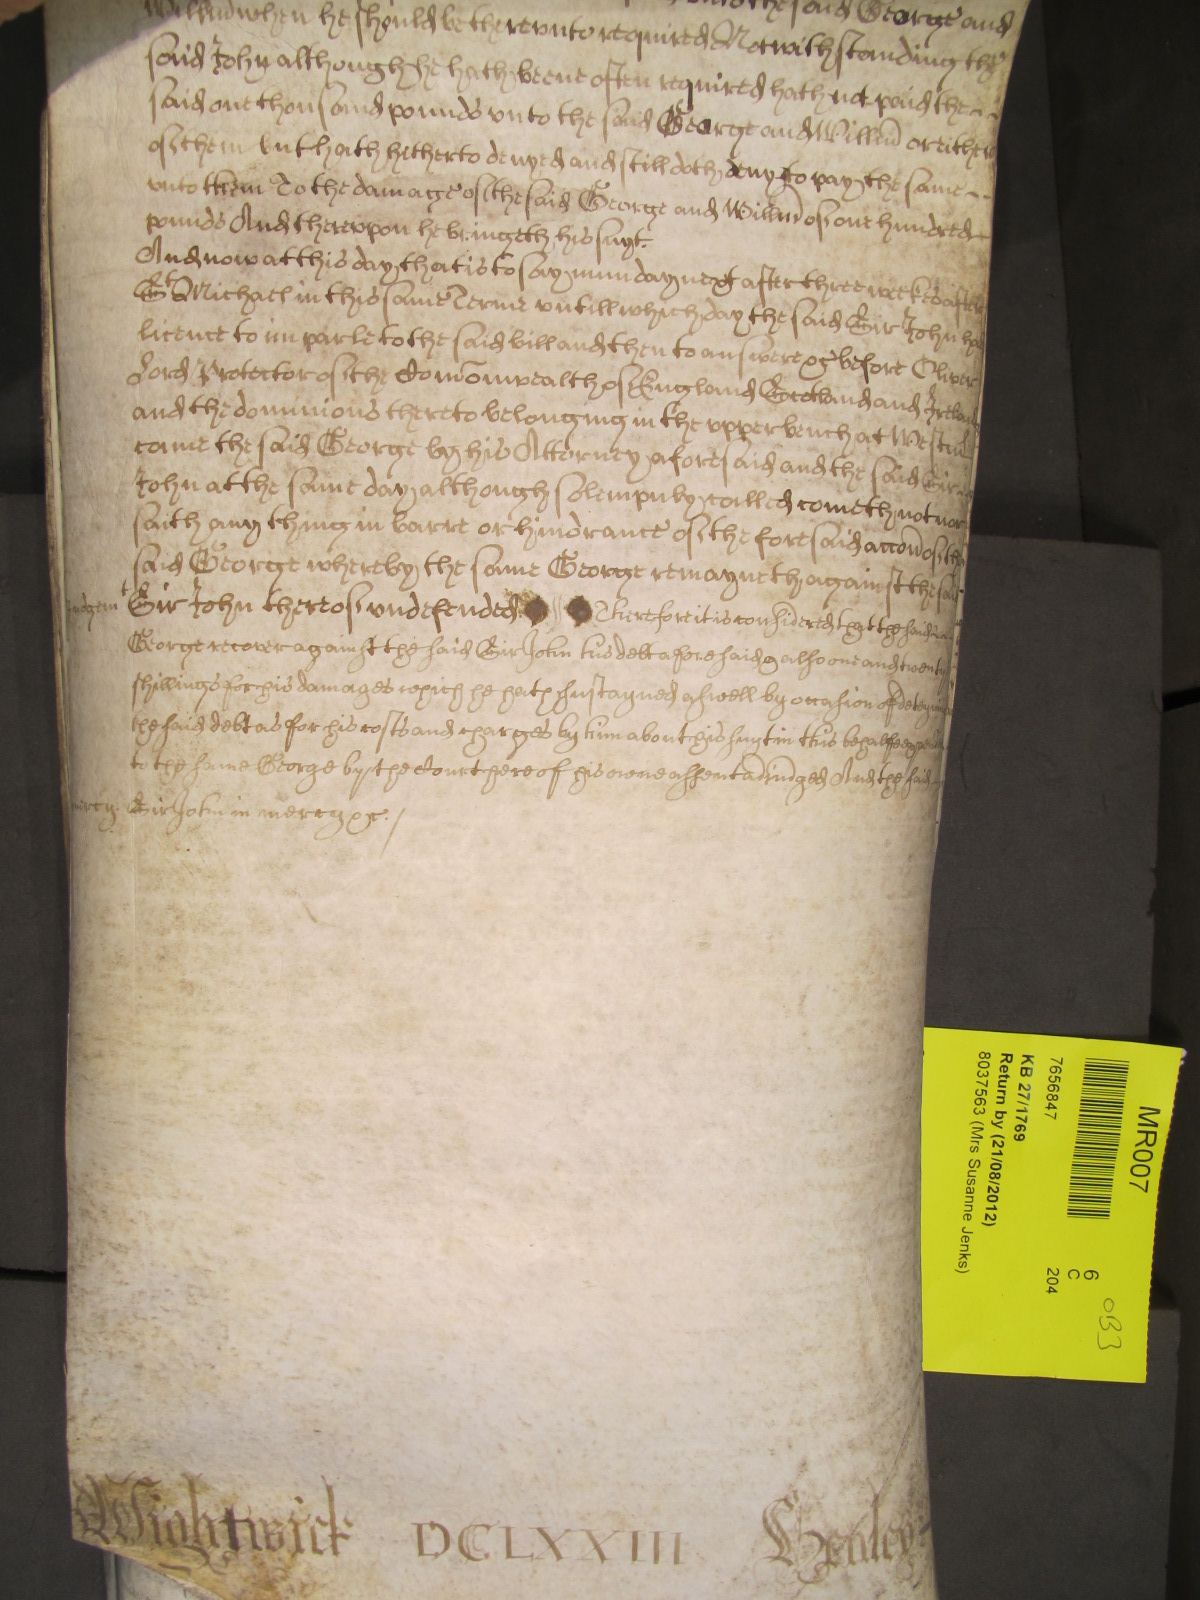 Willm when he should be thereunto required Notwithstanding the
said John although he hath beene often required hath not paid the
said one thousand pounds unto the said George and Willm or either
of them but hath hetherto denyed and still doth deny to pay the same
unto them To the damage of the said George and Willm of one hundred
pounds And thereupon he bringeth his suyt
And now at this day that is to say munday next after three weekes after
St Michael in this same Terme untill which day the said Sir John had
licence to imparle to the said bill and then to answere &c before Oliver
Lord Protector of the Comonwealth of England Scotland and Ireland
and the dominions thereto belonging in the upper bench at Westm
came the said George by his Attorney aforesaid and the said Sir
John at the same day although solempnly called cometh not nor
saith any thing in barre or hindrance of the foresaid accon of the
said George whereby the same George remayneth against the said
Judgemt Sir John thereof undefended Therefore it is considered that the said
George recover against the said Sir John his debt aforesaid & also one and twenty
shillings for his damages which he hath sustayned aswell by occasion of deteyning
the said debt as for his costs and charges by him about his suyt in this behalfe
to the same George by the Court here of his owne assent adiudged And the said
mercy. Sir John in mercy &c. /
Wightwick DCLXXIII Henley
MR007
7656847
6
C
204
KB 27/1769
Return by (21/08/2012)
8037563 (Mrs Susanne Jenks)